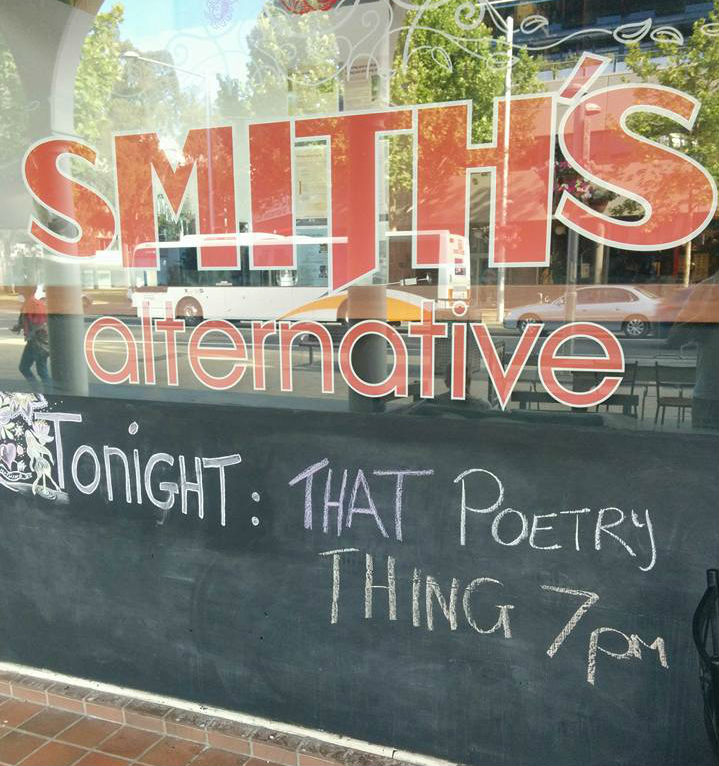 SMITH'S
alternative
TONiGHT: THAT POETRY
THiNG 7pm